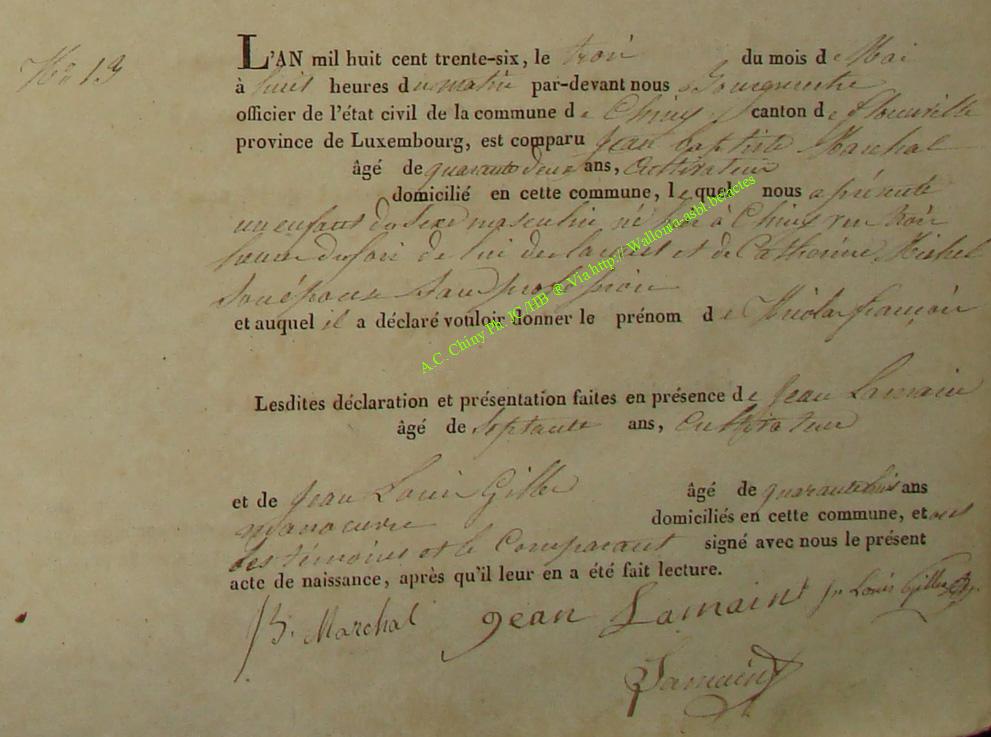 No 13
L'AN mil huit cent trente-six, le trois du mois de Mai
à huit heures du matin par-devant nous Bourguemetre
officier de l'état civil de la commune de Chiny canton de Florenville
province de Luxembourg, est comparu Jean baptiste Marchal
âgé de quarante deux ans, Cultivateur
domicilié en cette commune, lequel nous a présenté
un enfant du sexe masculin né hier à Chiny trois
heures du soir de lui declarant et de Catherine Michel
son épouse Sans profession
et auquel il a déclaré vouloir donner le prénom de Nicolas françois
Lesdites déclaration et présentation faites en présence de Jean Lamain
âgé de Septante ans, Cultivateur
et de Jean Louis Gilles âgé de quarante ans
manoeuvre domiciliés en cette commune, et ont
les témoins et le Comparant signé avec nous le présent
acte de naissance, après qu'il leur en a été fait lecture.
JB. Marchal Jean Lamaint jn Louis Gilles
Lamaint
A.C. Chiny Ph. JC /HB @ Via http:// Wallonia-asbl.be/actes